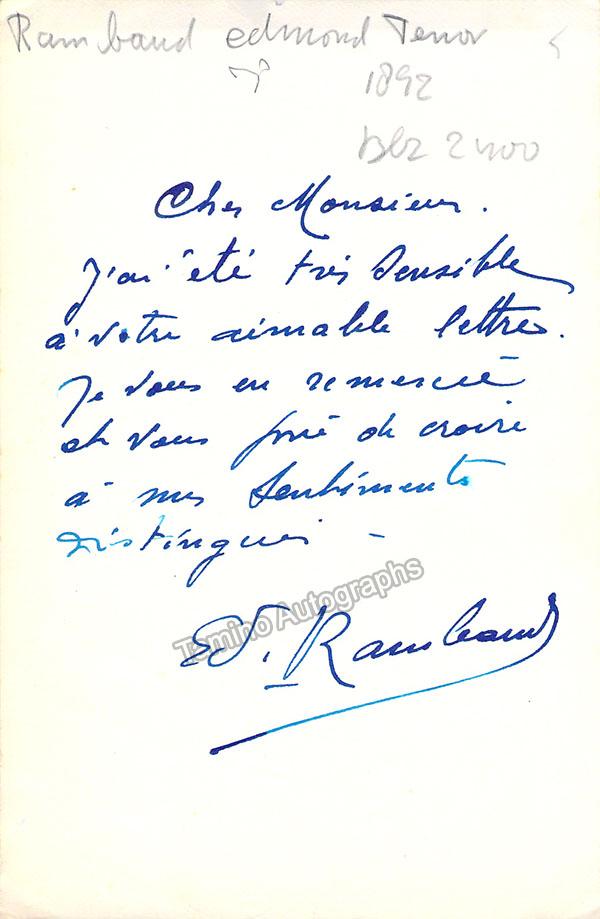 Rambaud edmond Tenor
1892
2400
Cher Monsieur.
J'ai été très sensible
à votre aimable lettre.
Je vous en remercie
et vous prie de croire
à mes sentiments
distingués -
Ed. Rambaud
Tamino Autographs